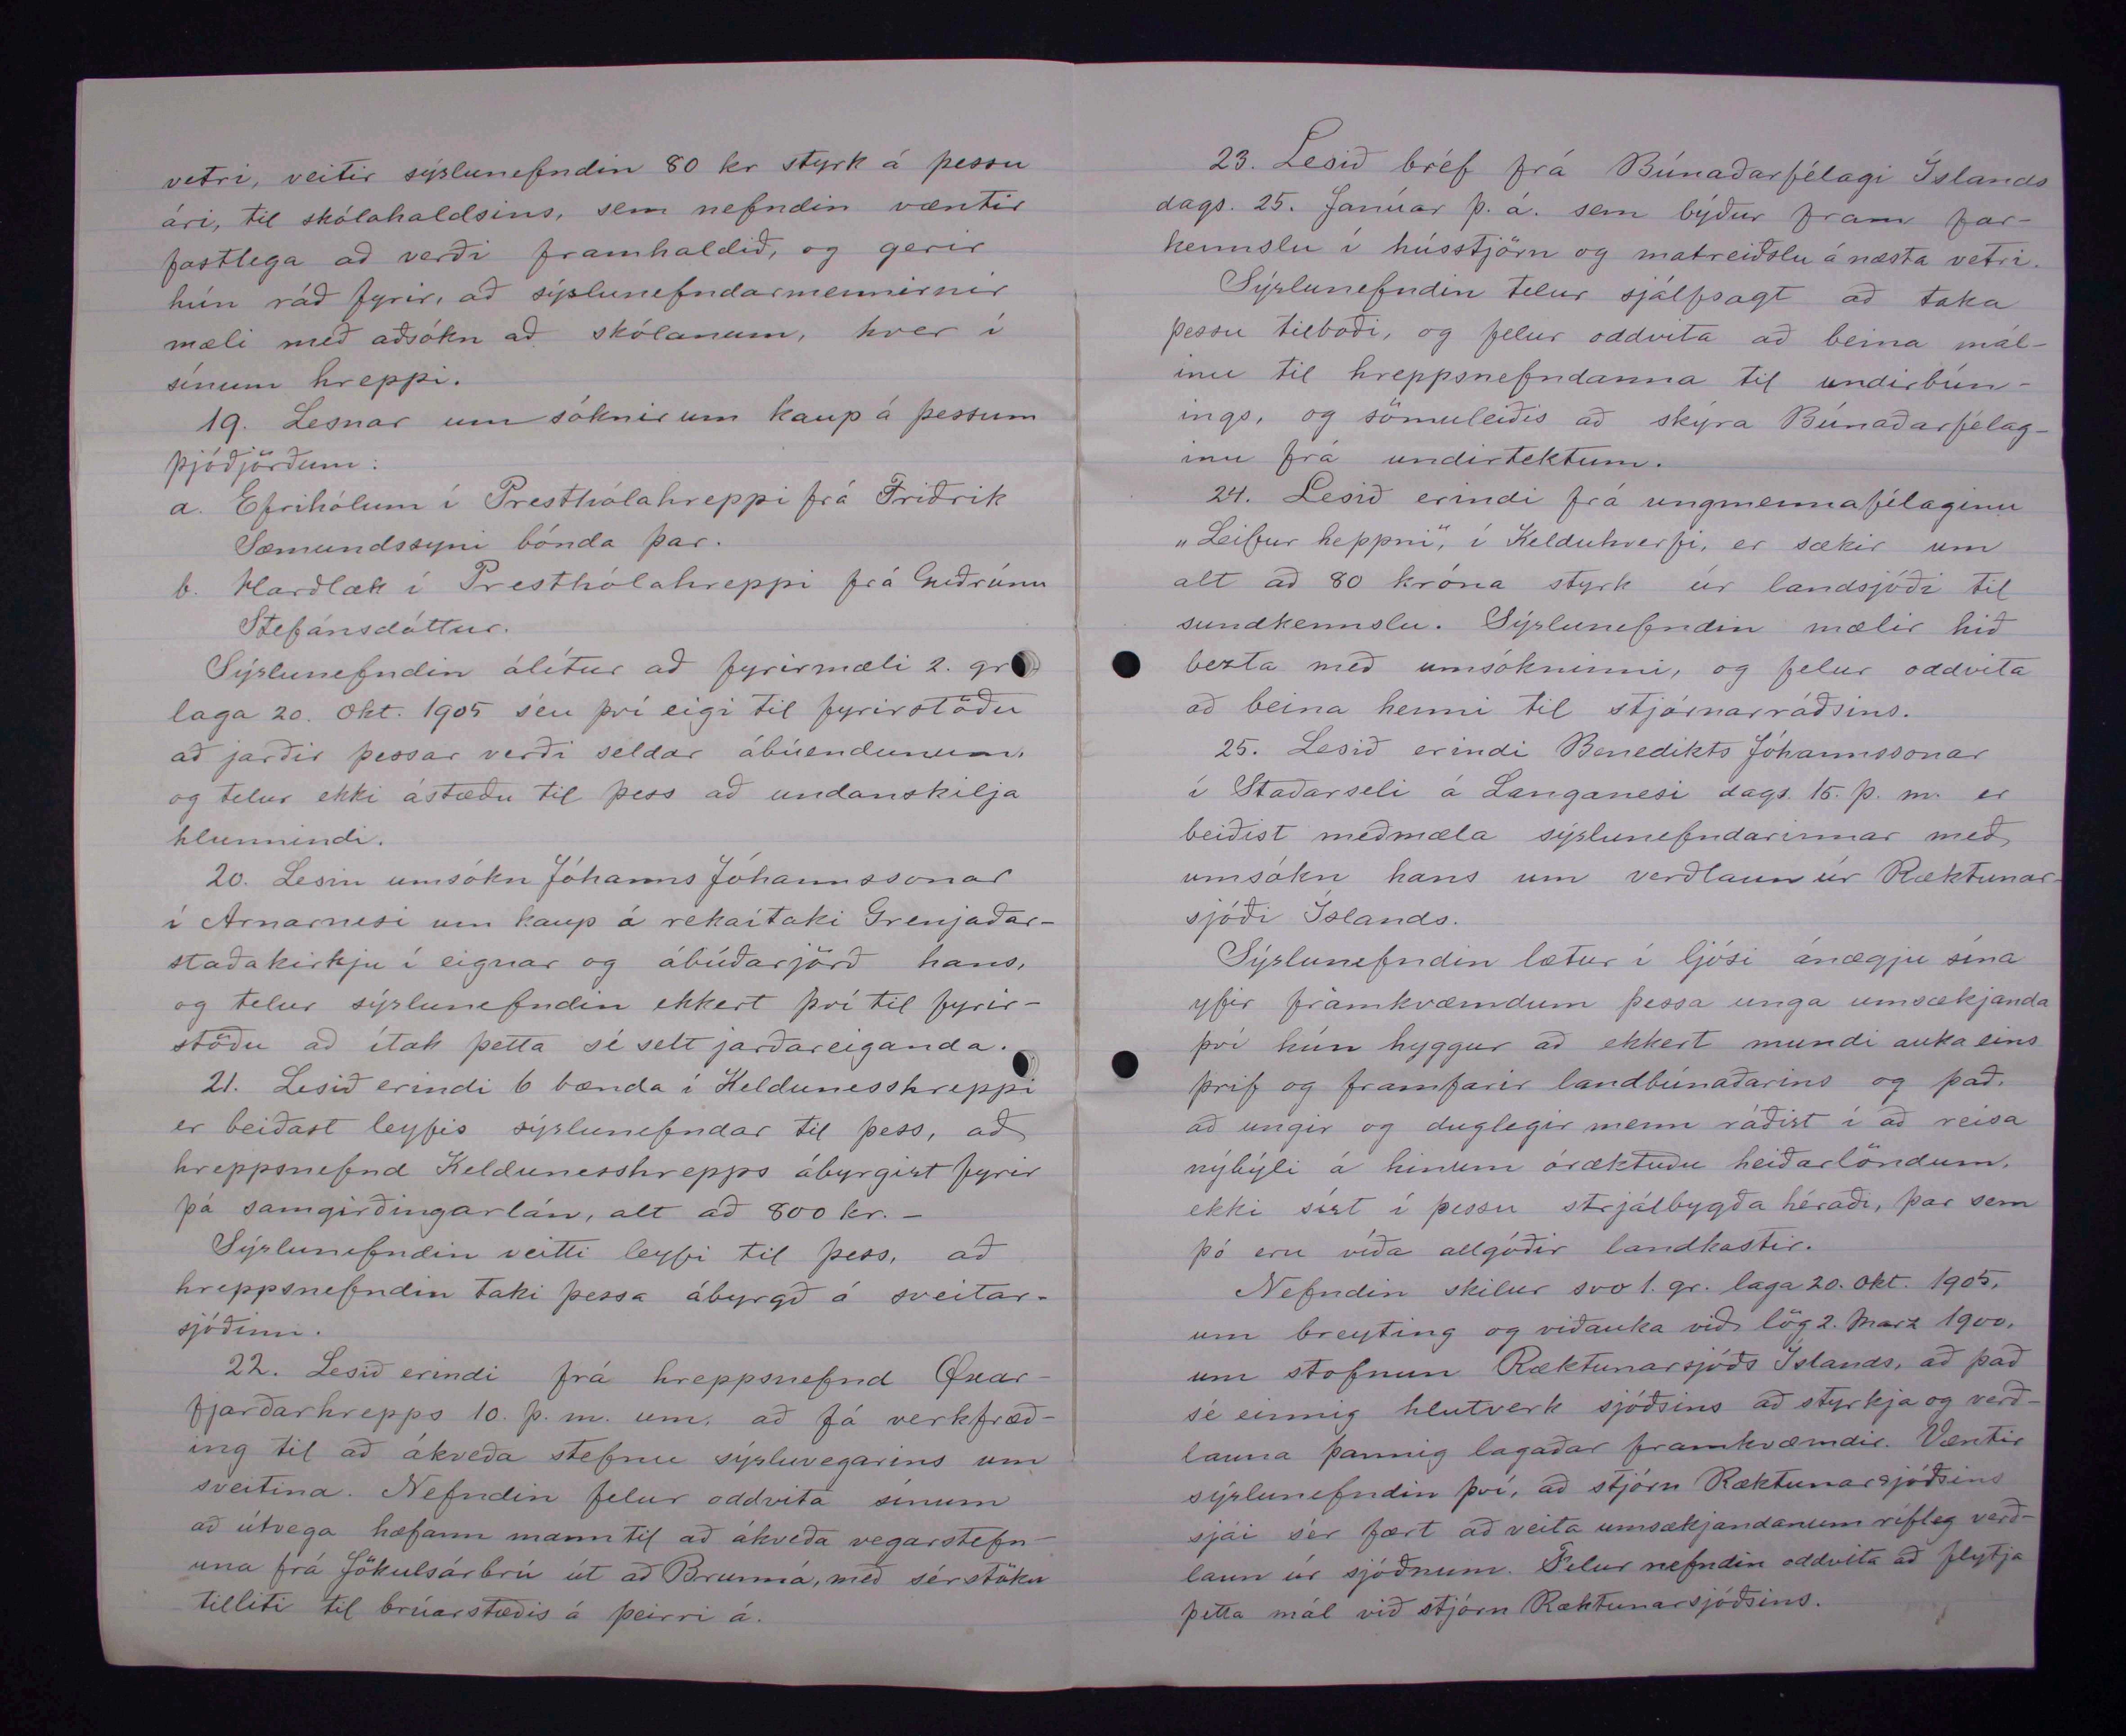 vetri, veitir sýslunefndin 80 kr styrk á þessu
ári, til skólahaldsins, sem nefndin væntir
fastlega að verði framhaldið, og gerir
hún ráð fyrir, að sýslunefndarmennirnir
mæli með aðsókn að skólanum, hver í
sínum hreppi.
19. Lesnar umsóknir um kaup á þessum
þjóðjörðum:
a. Efrihólum í Presthólahreppi frá Friðrik
Sæmundssyni bónda þar.
b. Harðlæk í Presthólahreppi frá Guðrúnu
Stefánsdóttur.
Sýslunefndin álítur að fyrirmæli 2. gr
laga 20. Okt. 1905 séu því eigi til fyrirstöðu
að jarðir þessar verði seldar ábúendunum,
og telur ekki ástæðu til þess að undanskilja
hlunnindi.
20. Lesin umsókn Jóhanns Jóhannssonar
í Arnarnesi um kaup á rekaítaki Grenjaðar-
staðakirkju í eignar og ábúðarjörð hans,
og telur sýslunefndin ekkert því til fyrir-
stöðu að ítak þetta sé selt jarðareiganda.
21. Lesið erindi 6 bænda í Keldunesshreppi
er beiðast leyfis sýslunefndar til þess, að
hreppsnefnd Keldunesshrepps ábyrgist fyrir
þá samgirðingarlán, alt að 800 kr. -
Sýslunefndin veitti leyfi til þess, að
hreppsnefndin taki þessa ábyrgð á sveitar-
sjóðinn.
22. Lesið erindi frá hreppsnefnd Öxar-
fjarðarhrepps 10. þ. m. um, að fá verkfræð-
ing til að ákveða stefnu sýsluvegarins um
sveitina. Nefndin felur oddvita sínum
að útvega hæfann mann til að ákveða vegarstefn-
una frá Jökulsárbrú út að Brunná, með sérstöku
tilliti til brúarstæðis á þeirri á.
23. Lesið bréf frá Búnaðarfélagi Íslands
dags. 25. Janúar þ. á. sem býður fram far-
kennslu í hússtjórn og matreiðslu á næsta vetri.
Sýslunefndin telur sjálfsagt að taka
þessu tilboði, og felur oddvita að beina mál-
inu til hreppsnefndanna til undirbún-
ings, og sömuleiðis að skýra Búnaðarfélag-
inu frá undirtektum.
24. Lesið erindi frá ungmennafélaginu
„Leifur heppni", í Kelduhverfi, er sækir um
alt að 80 króna styrk úr landsjóði til
sundkennslu. Sýslunefndin mælir hið
bezta með umsókninni, og felur oddvita
að beina henni til stjórnarráðsins.
25. Lesið erindi Benedikts Jóhannssonar
í Staðarseli á Langanesi dags. 15. þ. m. er
beiðist meðmæla sýslunefndarinnar með
umsókn hans um verðlaun úr Ræktunar-
sjóði Íslands.
Sýslunefndin lætur í ljósi ánægju sína
yfir framkvæmdum þessa unga umsækjanda
því hún hyggur að ekkert mundi auka eins
þrif og framfarir landbúnaðarins og það,
að ungir og duglegir menn ráðist í að reisa
nýbýli á hinum óræktuðu heiðarlöndum,
ekki síst í þessu strjálbygða héraði, þar sem
þó eru víða allgóðir landkostir.
Nefndin skilur svo 1. gr. laga 20. Okt. 1905,
um breyting og viðauka við lög 2. Marz 1900,
um stofnun Ræktunarsjóðs Íslands, að það
sé einnig hlutverk sjóðsins að styrkja og verð-
launa þannig lagaðar framkvæmdir. Væntir
sýslunefndin því, að stjórn Ræktunarsjóðsins
sjái sér fært að veita umsækjandanum rífleg verð-
laun úr sjóðnum. Felur nefndin oddvita að flytja
þetta mál við stjórn Ræktunarsjóðsins.